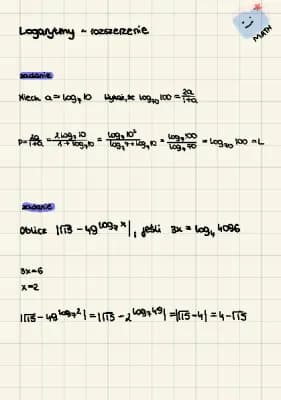 Logarytmy - rozszerzenie
MATH
zadanie
Niech a = log₇ 10 Wykaż, że log₇₀ 100 = 2a/1+a
P = 2a/1+a = 2 log₇ 10/1 + log₇ 10 = log₇ 10²/log₇ 7 + log₇ 10 = log₇ 100/log₇ 70 = log₇₀ 100 = L
zadanie
Oblicz |√15 - 49^log₇ x|, jeśli 3x = log₄ 4096
3x = 6
x = 2
|√15 - 49^log₇ 2| = |√15 - 2^log₇ 49| = |√15 - 4| = 4 - √15